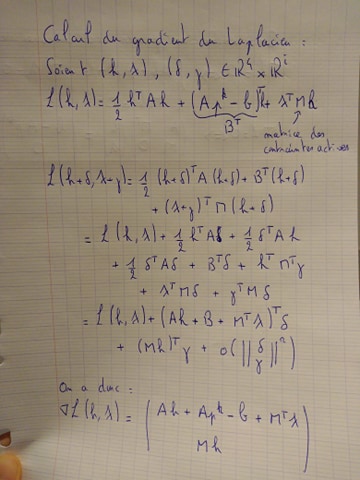 Calcul du gradient du Laplacien :
Soient (h, λ), (δ, γ) ∈ ℝ⁴ × ℝⁱ
L(h, λ) = 1/2 hᵀ A h + (Apᵏ - b)ᵀh + λᵀ M h
Bᵀ
matrice des
contraintes actives
L(h+δ, λ+γ) = 1/2 (h+δ)ᵀ A (h+δ) + Bᵀ(h+δ)
+ (λ+γ)ᵀ M (h+δ)
= L(h, λ) + 1/2 hᵀAδ + 1/2 δᵀ A h
+ 1/2 δᵀAδ + Bᵀδ + hᵀ Mᵀγ
+ λᵀMδ + γᵀM δ
= L(h, λ) + (Ah + B + Mᵀλ)ᵀ δ
+ (Mh)ᵀ γ + o(||δ γ||²)
On a donc :
∇L(h, λ) = ( Ah + Apᵏ - b + Mᵀλ
Mh )